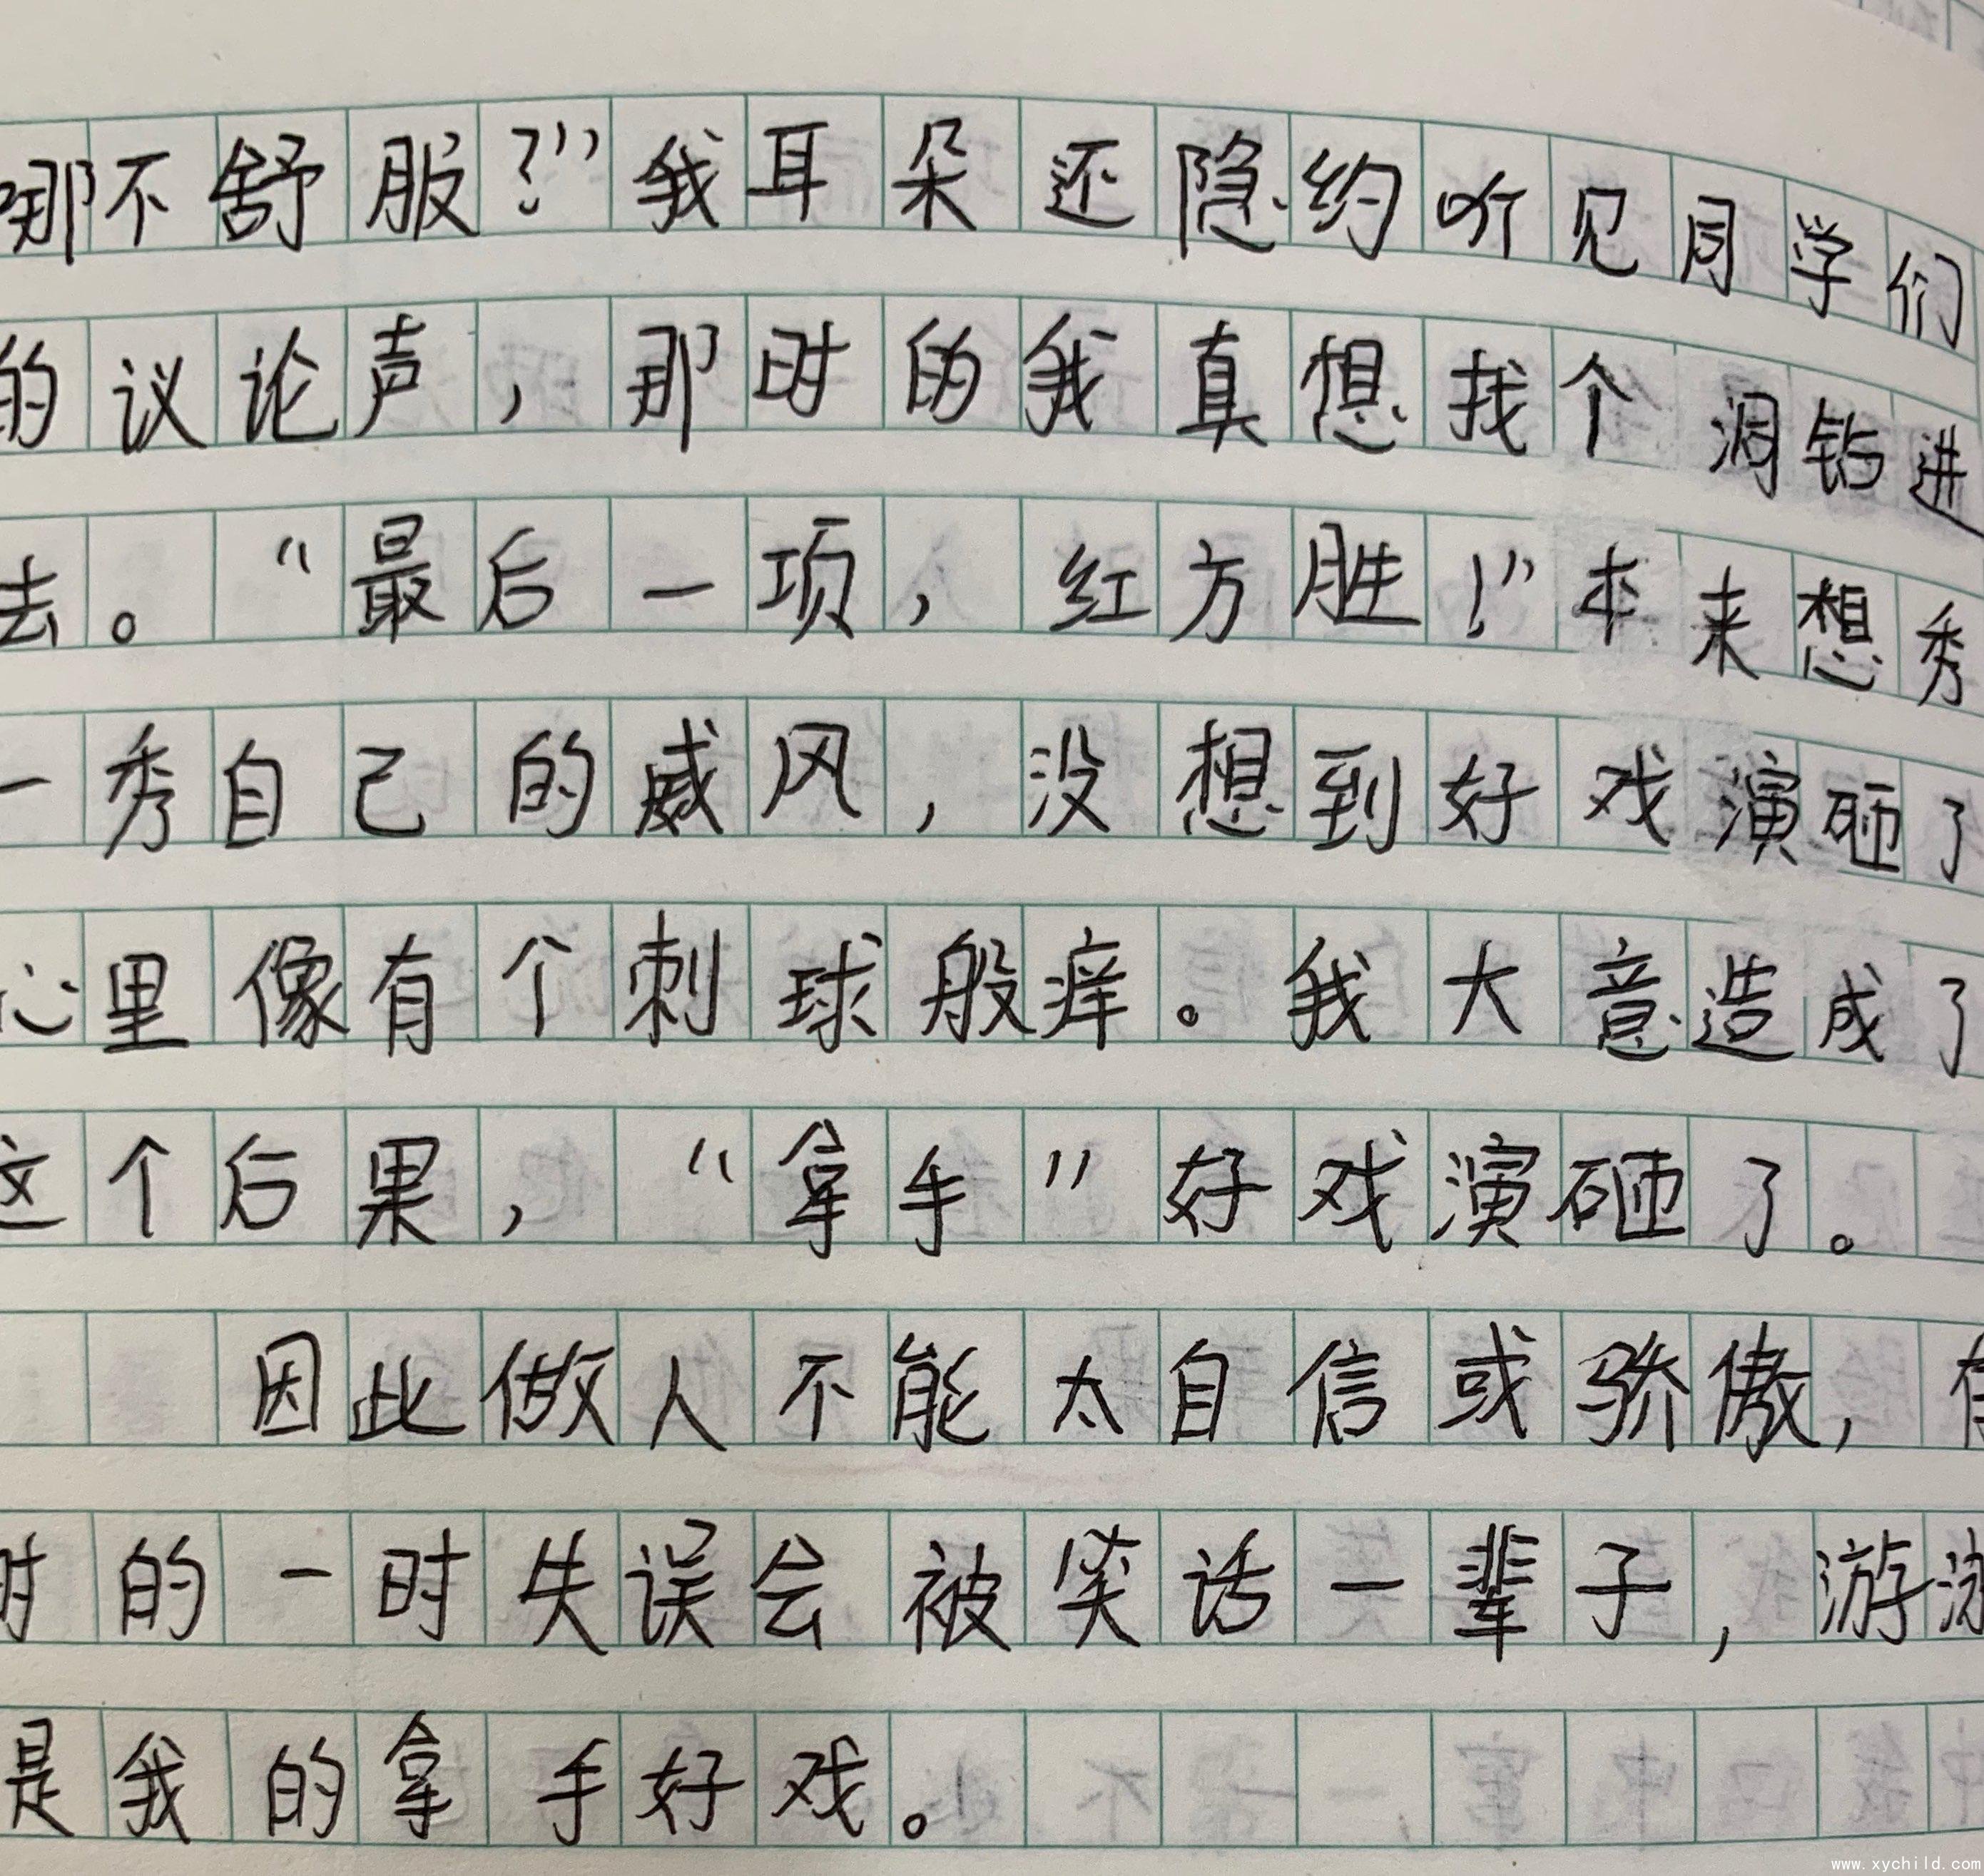 哪不舒服?”我耳朵还隐约听见同学们
的议论声，那时的我真想找个洞钻进
去。“最后一项，红方胜!”本来想秀
一秀自己的威风，没想到好戏演砸了
心里像有个刺球般痒。我大意造成了
这个后果，“拿手”好戏演砸了。
因此做人不能太自信或骄傲，有
时的一时失误会被笑话一辈子，游泳
是我的拿手好戏。
www.xychild.com